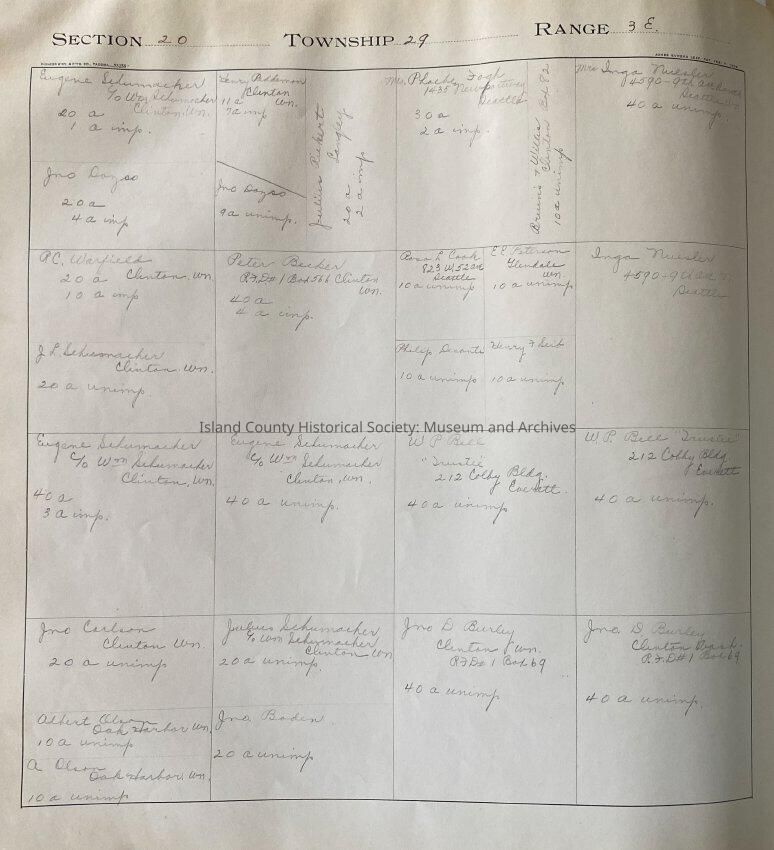 SECTION 20 TOWNSHIP 29 RANGE 3 E.
Eugene Schumacker
C/o Wm Schumacher
Clinton, Wn.
20 a
1 a imp.
Henry
Clinton
11 a Wn.
7 a imp
Julius
Langley
20 a
2 a imp
Mrs. Phoebe Fogh
1435
Seattle
30 a
2 a imp.
Bruns & Willis
Clinton Box 82
10 a unimp
Mrs Inga Nuesler
4590-9th Ave
Seattle
40 a unimp.
Jno
20 a
4 a imp
Jno
9 a unimp.
P.C. Warfield
20 a Clinton, Wn.
10 a imp
Peter Becker
R.F.D.#1 Box 566 Clinton
Wn.
40 a
4 a imp.
Rosa L Cook
823 W. 52
Seattle
10 a unimp
E E Peterson
Glendale
Wn.
10 a unimp.
Inga Nuesler
4590-9th Ave N.
Seattle
J L. Schumacher
Clinton, Wn.
20 a unimp
Philip
10 a unimp
Henry F Seib
10 a unimp
Island County Historical Society: Museum and Archives
Eugene Schumacher
C/o Wm Schumacher
Clinton, Wn.
40 a
3 a imp.
Eugene Schumacher
C/o Wm Schumacher
Clinton, Wn.
40 a unimp.
W P Bell
"Trustie"
212 Colby Bldg.
Everett.
40 a unimp
W. P. Bell "Trustie"
212 Colby Bldg.
Everett
40 a unimp.
Jno Carlson
Clinton Wn.
20 a unimp
Julius Schumacher
C/o Wm Schumacher
Clinton Wn
20 a unimp.
Jno D Burley
Clinton, Wn.
R.F.D#1 Box 69
40 a unimp
Jno. D Burley
Clinton Wash.
R.F.D#1 Box 69
40 a unimp.
Albert Olson
Oak Harbor Wn
10 a unimp
Jno. Boden.
20 a unimp
A Olson
Oak Harbor, Wn.
10 a unimp